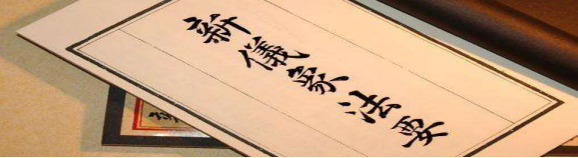 新儀象法要